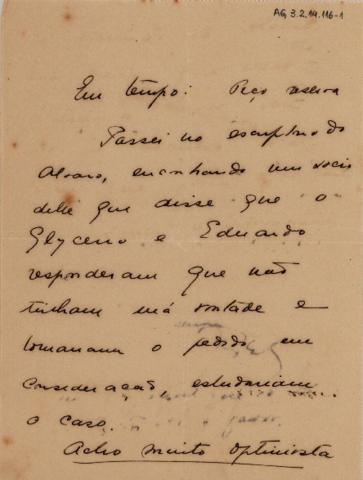 AG, 3.2.14.116-1
Em tempo: Peço reserva
Passei no escriptorio do
Alvaro, encontrando um socio
delle que disse que o
Glycerio e Eduardo
responderam que não
tinham má vontade e
tomariam o pedido em
consideração, estudariam
o caso.
Acho muito optimista